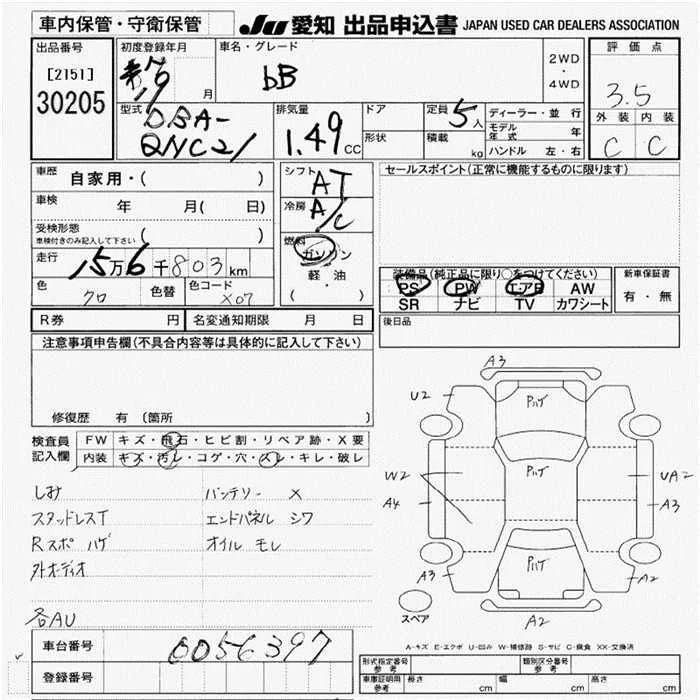 車内保管・守衛保管
JU 愛知 出品申込書 JAPAN USED CAR DEALERS ASSOCIATION
出品番号
[2151]
30205
初度登録年月
19 月
車名・グレード
bB
2WD
・
4WD
評価点
3.5
外装 内装
C C
型式
DBA-
QNC21
排気量
1.49 CC
ドア
形状
定員 5 人
積載 kg
ディーラー・並行
モデル年式 年
ハンドル 左・右
車歴 自家用・( )
車検 年 月( 日)
受検形態
車検付きのみ記入して下さい ( )
走行 15万6千803km
色 クロ
色替
色コード X07
シフト AT
冷房 A/C
燃料 ガソリン
軽・油
( ・ )
セールスポイント(正常に機能するものに限ります)
装備品(純正品に限り○をつけてください)
PS PW エアB AW
SR ナビ TV カワシート
新車保証書
有・無
後日品
R券 円
名変通知期限 月 日
注意事項申告欄(不具合内容等は具体的に記入して下さい)
修復歴 有 〔箇所 〕
検査員記入欄
FW キズ・飛石・ヒビ割・リペア跡・X要
内装 キズ・汚レ・コゲ・穴・スレ・キレ・破レ
しみ バッテリー X
スタッドレスT エンドパネル シワ
Rスポ ハゲ オイル モレ
外オーディオ
各AU
A3
U2
Pハゲ
W2
Pハゲ
UA2
A4
A3
Pハゲ
A3
A2
A2
スペア
A-キズ E-エクボ U-凹み W-補修跡 S-サビ C-腐食 XX-交換済
車台番号 0056397
登録番号
形式指定番号 参考
類別区分番号 参考
車庫証明用 参考 長さ cm 幅 cm 高さ cm